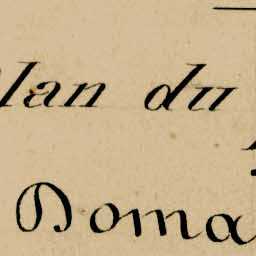 lan du
Doma